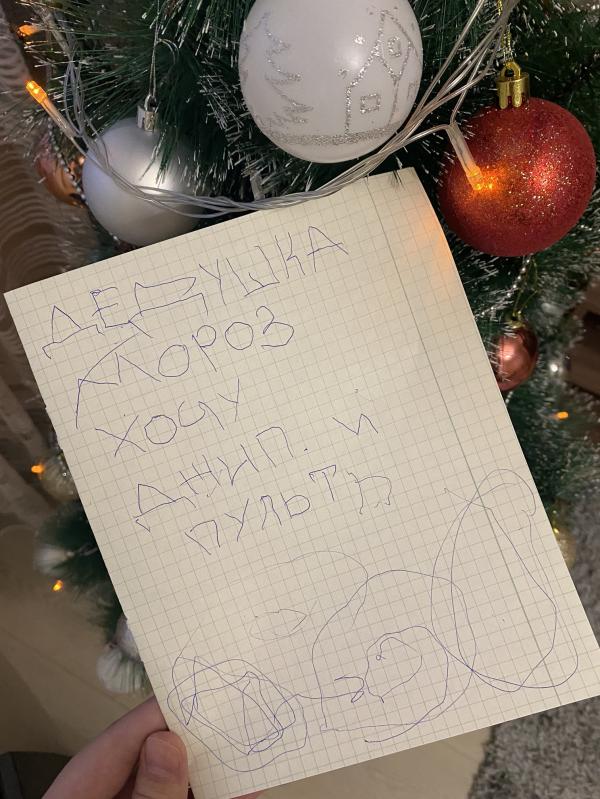 ДЕДУШКА
МОРОЗ
ХОЧУ
ДЖИП. И
ПУЛЬТЬ